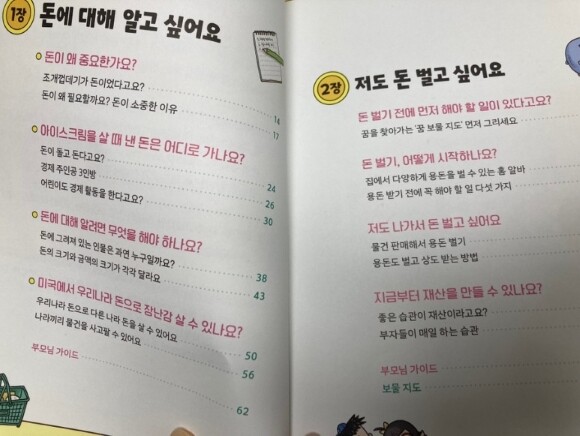 1장 돈에 대해 알고 싶어요
돈이 왜 중요한가요?
조개껍데기가 돈이었다고요? 14
돈이 왜 필요할까요? 돈이 소중한 이유 17
아이스크림을 살 때 낸 돈은 어디로 가나요?
돈이 돌고 돈다고요? 24
경제 주인공 3인방 26
어린이도 경제 활동을 한다고요? 30
돈에 대해 알려면 무엇을 해야 하나요?
돈에 그려져 있는 인물은 과연 누구일까요? 38
돈의 크기와 금액의 크기가 각각 달라요 43
미국에서 우리나라 돈으로 장난감 살 수 있나요?
우리나라 돈으로 다른 나라 돈을 살 수 있어요 50
나라끼리 물건을 사고팔 수 있어요 56
부모님 가이드 62
2장 저도 돈 벌고 싶어요
돈 벌기 전에 먼저 해야 할 일이 있다고요?
꿈을 찾아가는 '꿈 보물 지도' 먼저 그리세요
돈 벌기, 어떻게 시작하나요?
집에서 다양하게 용돈을 벌 수 있는 홈 알바
용돈 받기 전에 꼭 해야 할 일 다섯 가지
저도 나가서 돈 벌고 싶어요
물건 판매해서 용돈 벌기
용돈도 벌고 상도 받는 방법
지금부터 재산을 만들 수 있나요?
좋은 습관이 재산이라고요?
부자들이 매일 하는 습관
부모님 가이드
보물 지도